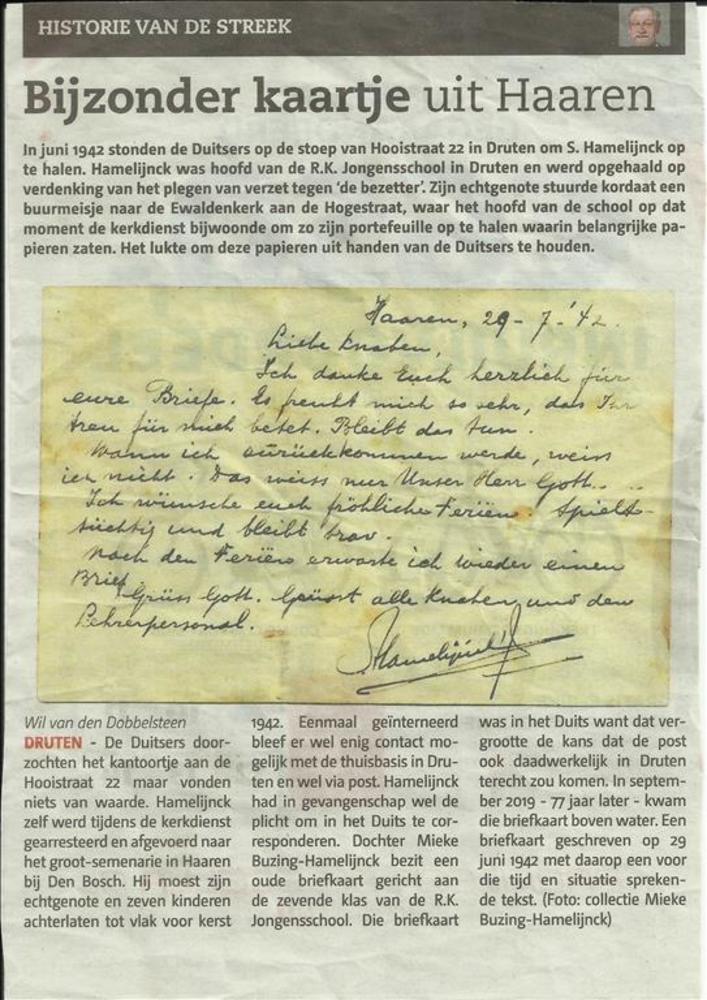 HISTORIE VAN DE STREEK
Bijzonder kaartje uit Haaren
In juni 1942 stonden de Duitsers op de stoep van Hooistraat 22 in Druten om S. Hamelijnck op
te halen. Hamelijnck was hoofd van de R.K. Jongensschool in Druten en werd opgehaald op
verdenking van het plegen van verzet tegen ‘de bezetter’. Zijn echtgenote stuurde kordaat een
buurmeisje naar de Ewaldenkerk aan de Hogestraat, waar het hoofd van de school op dat
moment de kerkdienst bijwoonde om zo zijn portefeuille op te halen waarin belangrijke pa-
pieren zaten. Het lukte om deze papieren uit handen van de Duitsers te houden.
Haaren, 29-7-'42.
Liebe Knaben,
Ich danke Euch herzlich für
eure Briefe. Es freuht mich so sehr, das Ihr
treu für mich betet. Bleibt das tun.
Wann ich zurückkommen werde, weiss
ich nicht. Das weiss nur Unser Herr Gott...
Ich wünsche euch fröhliche Feriën. Spielt
tüchtig und bleibt brav.
Nach den Feriëns erwarte ich wieder einen
Brief. Grüss Gott. Grüsst alle Knaben und den
Lehrerpersonal.
SHamelijnck
Wil van den Dobbelsteen
DRUTEN - De Duitsers door-
zochten het kantoortje aan de
Hooistraat 22 maar vonden
niets van waarde. Hamelijnck
zelf werd tijdens de kerkdienst
gearresteerd en afgevoerd naar
het groot-semenarie in Haaren
bij Den Bosch. Hij moest zijn
echtgenote en zeven kinderen
achterlaten tot vlak voor kerst
1942. Eenmaal geïnterneerd
bleef er wel enig contact mo-
gelijk met de thuisbasis in Dru-
ten en wel via post. Hamelijnck
had in gevangenschap wel de
plicht om in het Duits te cor-
responderen. Dochter Mieke
Buzing-Hamelijnck bezit een
oude briefkaart gericht aan
de zevende klas van de R.K.
Jongensschool. Die briefkaart
was in het Duits want dat ver-
grootte de kans dat de post
ook daadwerkelijk in Druten
terecht zou komen. In septem-
ber 2019 - 77 jaar later - kwam
die briefkaart boven water. Een
briefkaart geschreven op 29
juni 1942 met daarop een voor
die tijd en situatie spreken-
de tekst. (Foto: collectie Mieke
Buzing-Hamelijnck)